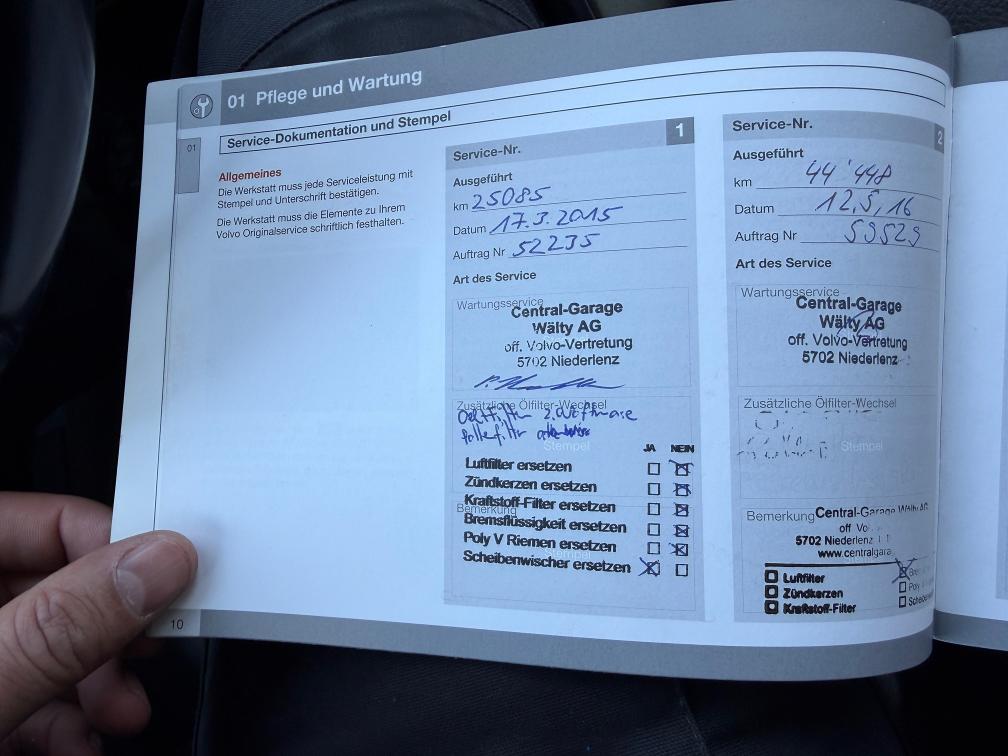 01 Pflege und Wartung
01
Service-Dokumentation und Stempel
Allgemeines
Die Werkstatt muss jede Serviceleistung mit
Stempel und Unterschrift bestätigen.
Die Werkstatt muss die Elemente zu Ihrem
Volvo Originalservice schriftlich festhalten.
Service-Nr. 1
Ausgeführt
km 25085
Datum 17.3.2015
Auftrag Nr 52235
Art des Service
Wartungsservice
Central-Garage
Wälty AG
off. Volvo-Vertretung
5702 Niederlenz
Zusätzliche Ölfilter-Wechsel
Stempel
JA NEIN
Luftfilter ersetzen
Zündkerzen ersetzen
Kraftstoff-Filter ersetzen
Bemerkung
Bremsflüssigkeit ersetzen
Poly V Riemen ersetzen
Stempel
Scheibenwischer ersetzen
Service-Nr. 2
Ausgeführt
km 44'448
Datum 12,5,16
Auftrag Nr 59529
Art des Service
Wartungsservice
Central-Garage
Wälty AG
off. Volvo-Vertretung
5702 Niederlenz
Zusätzliche Ölfilter-Wechsel
Stempel
Bemerkung Central-Garage Wälty AG
off Vo
5702 Niederlenz
www.centralgara
Luftfilter
Zündkerzen
Poly
Kraftstoff-Filter
Scheibe
10